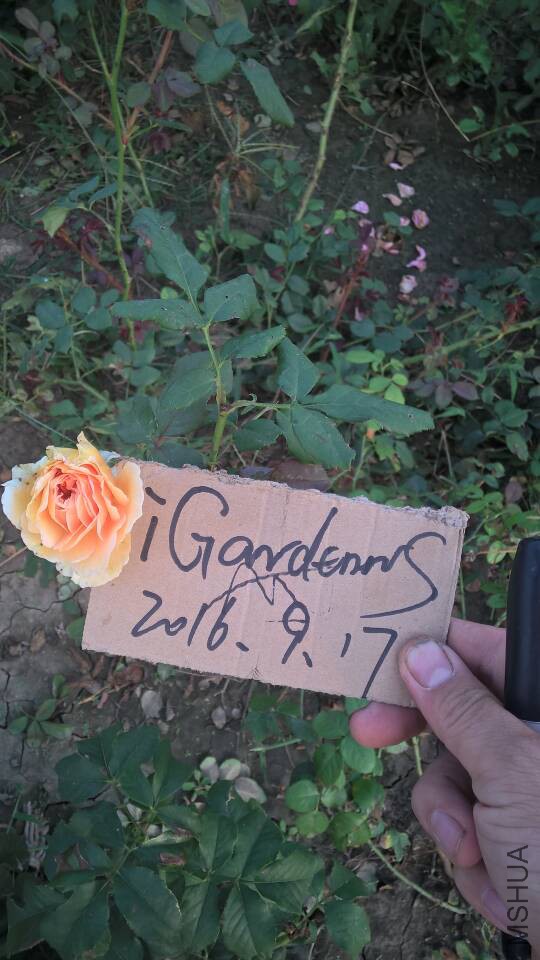 iGardenns
2016.9.17
MSHUA